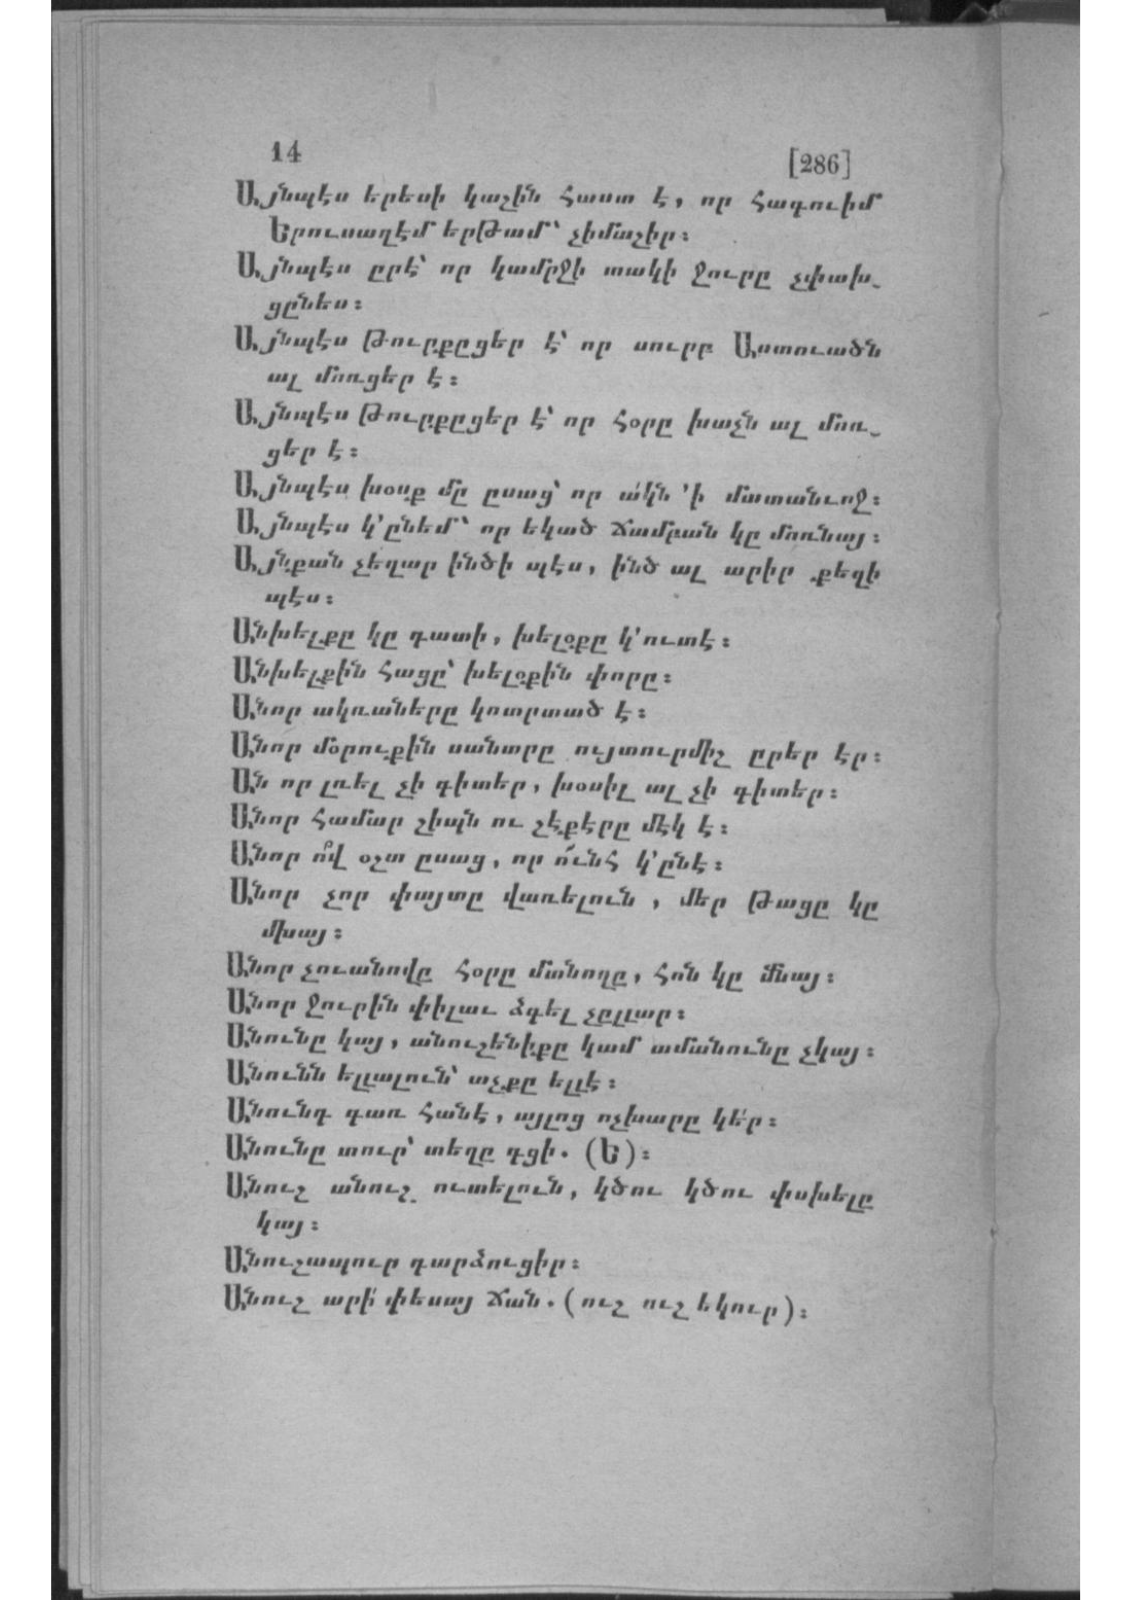 14
[286]
Այնպէս երեսի կաշին հաստ է, որ հագուիմ
Երուսաղէմ երթամ՝ չիմաշիր։
Այնպէս ըրէ՝ որ կամրջի տակի ջուրը չփախ֊
ցընես։
Այնպէս թուրքըցեր է՝ որ սուրբ Աստուածն
ալ մոռցեր է։
Այնպէս թուրքըցեր է՝ որ հօրը խաչն ալ մոռ֊
ցեր է։
Այնպէս խօսք մը ըսաց՝ որ ակն ՚ի մատանւոջ։
Այնպէս կ՚ընեմ՝ որ եկած ճամբան կը մոռնայ։
Այնքան չեղար ինծի պէս, ինծ ալ արիր քեզի
պէս։
Անխելքը կը դատի, խելօքը կ՚ուտէ։
Անխելքին հացը՝ խելօքին փորը։
Անոր ակռաները կոտրտած է։
Անոր մօրուքին սանտրը ույտուրմիշ ըրեր էր։
Ան որ լռել չի գիտեր, խօսիլ ալ չի գիտեր։
Անոր համար շիպն ու շէքերը մէկ է։
Անոր ո՞վ օշտ ըսաց, որ ո՜ւնհ կ՚ընէ։
Անոր չոր փայտը վառելուն, մեր թացը կը
մխայ։
Անոր չուանովը հօրը մանողը, հոն կը մնայ։
Անոր ջուրին փիլաւ ձգել չըլլար։
Անունը կայ, անուշենիքը կամ ամանունը չկայ։
Անունն ելլալուն՝ աչքը ելլէ։
Անունդ գառ հանէ, այլոց ոչխարը կե՛ր։
Անունը տուր՝ տեղը դցի. (Ե)։
Անուշ անուշ ուտելուն, կծու կծու փսխելը
կայ։
Անուշապուր դարձուցիր։
Անուշ արի՛ փեսայ ճան. (ուշ ուշ եկուր)։